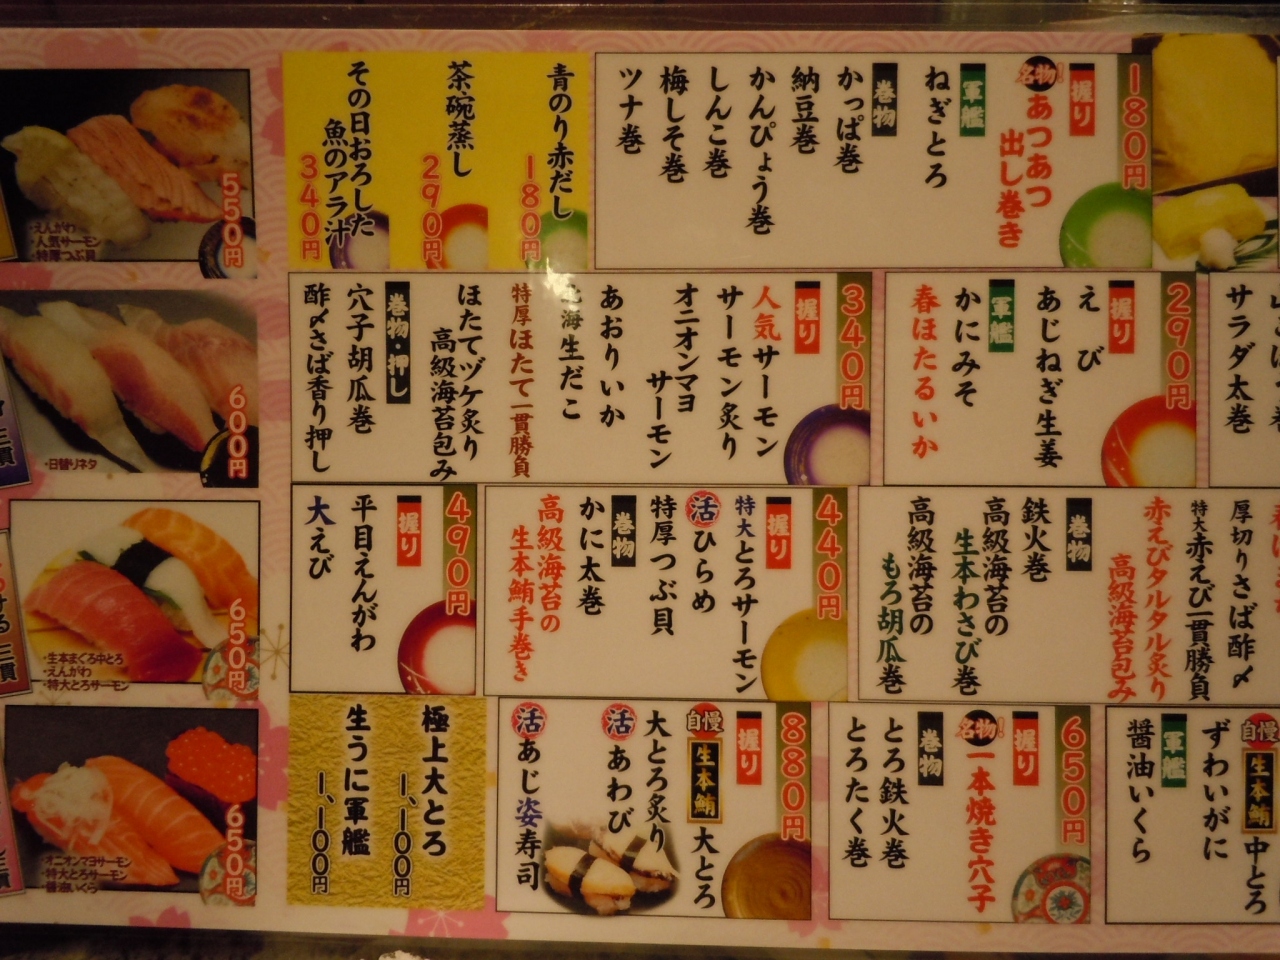 180円
握り
名物!
あつあつ
出し巻き
軍艦
ねぎとろ
巻物
かっぱ巻
納豆巻
かんぴょう巻
しんこ巻
梅しそ巻
ツナ巻
青のり赤だし
180円
茶碗蒸し
290円
その日おろした
魚のアラ汁
340円
サラダ太巻
290円
握り
えび
あじねぎ生姜
軍艦
かにみそ
春ほたるいか
340円
握り
人気サーモン
サーモン炙り
オニオンマヨ
サーモン
あおりいか
北海生だこ
特厚ほたて一貫勝負
ほたてヅケ炙り
高級海苔包み
巻物・押し
穴子胡瓜巻
酢〆さば香り押し
厚切りさば酢〆
特大赤えび一貫勝負
赤えびタルタル炙り
高級海苔包み
巻物
鉄火巻
高級海苔の
生本わさび巻
高級海苔の
もろ胡瓜巻
440円
握り
特大とろサーモン
活ひらめ
特厚つぶ貝
巻物
かに太巻
高級海苔の
生本鮪手巻き
490円
握り
平目えんがわ
大えび
自慢
生本鮪
中とろ
ずわいがに
軍艦
醤油いくら
650円
握り
名物!
一本焼き穴子
巻物
とろ鉄火巻
とろたく巻
880円
握り
自慢
生本鮪
大とろ
大とろ炙り
活あわび
活あじ姿寿司
極上大とろ
1,100円
生うに軍艦
1,100円
550円
・えんがわ
・人気サーモン
・特厚つぶ貝
600円
・日替りネタ
三貫
650円
・生本まぐろ中とろ
・えんがわ
・特大とろサーモン
三貫
650円
・オニオンマヨサーモン
・特大とろサーモン
・醤油いくら
三貫